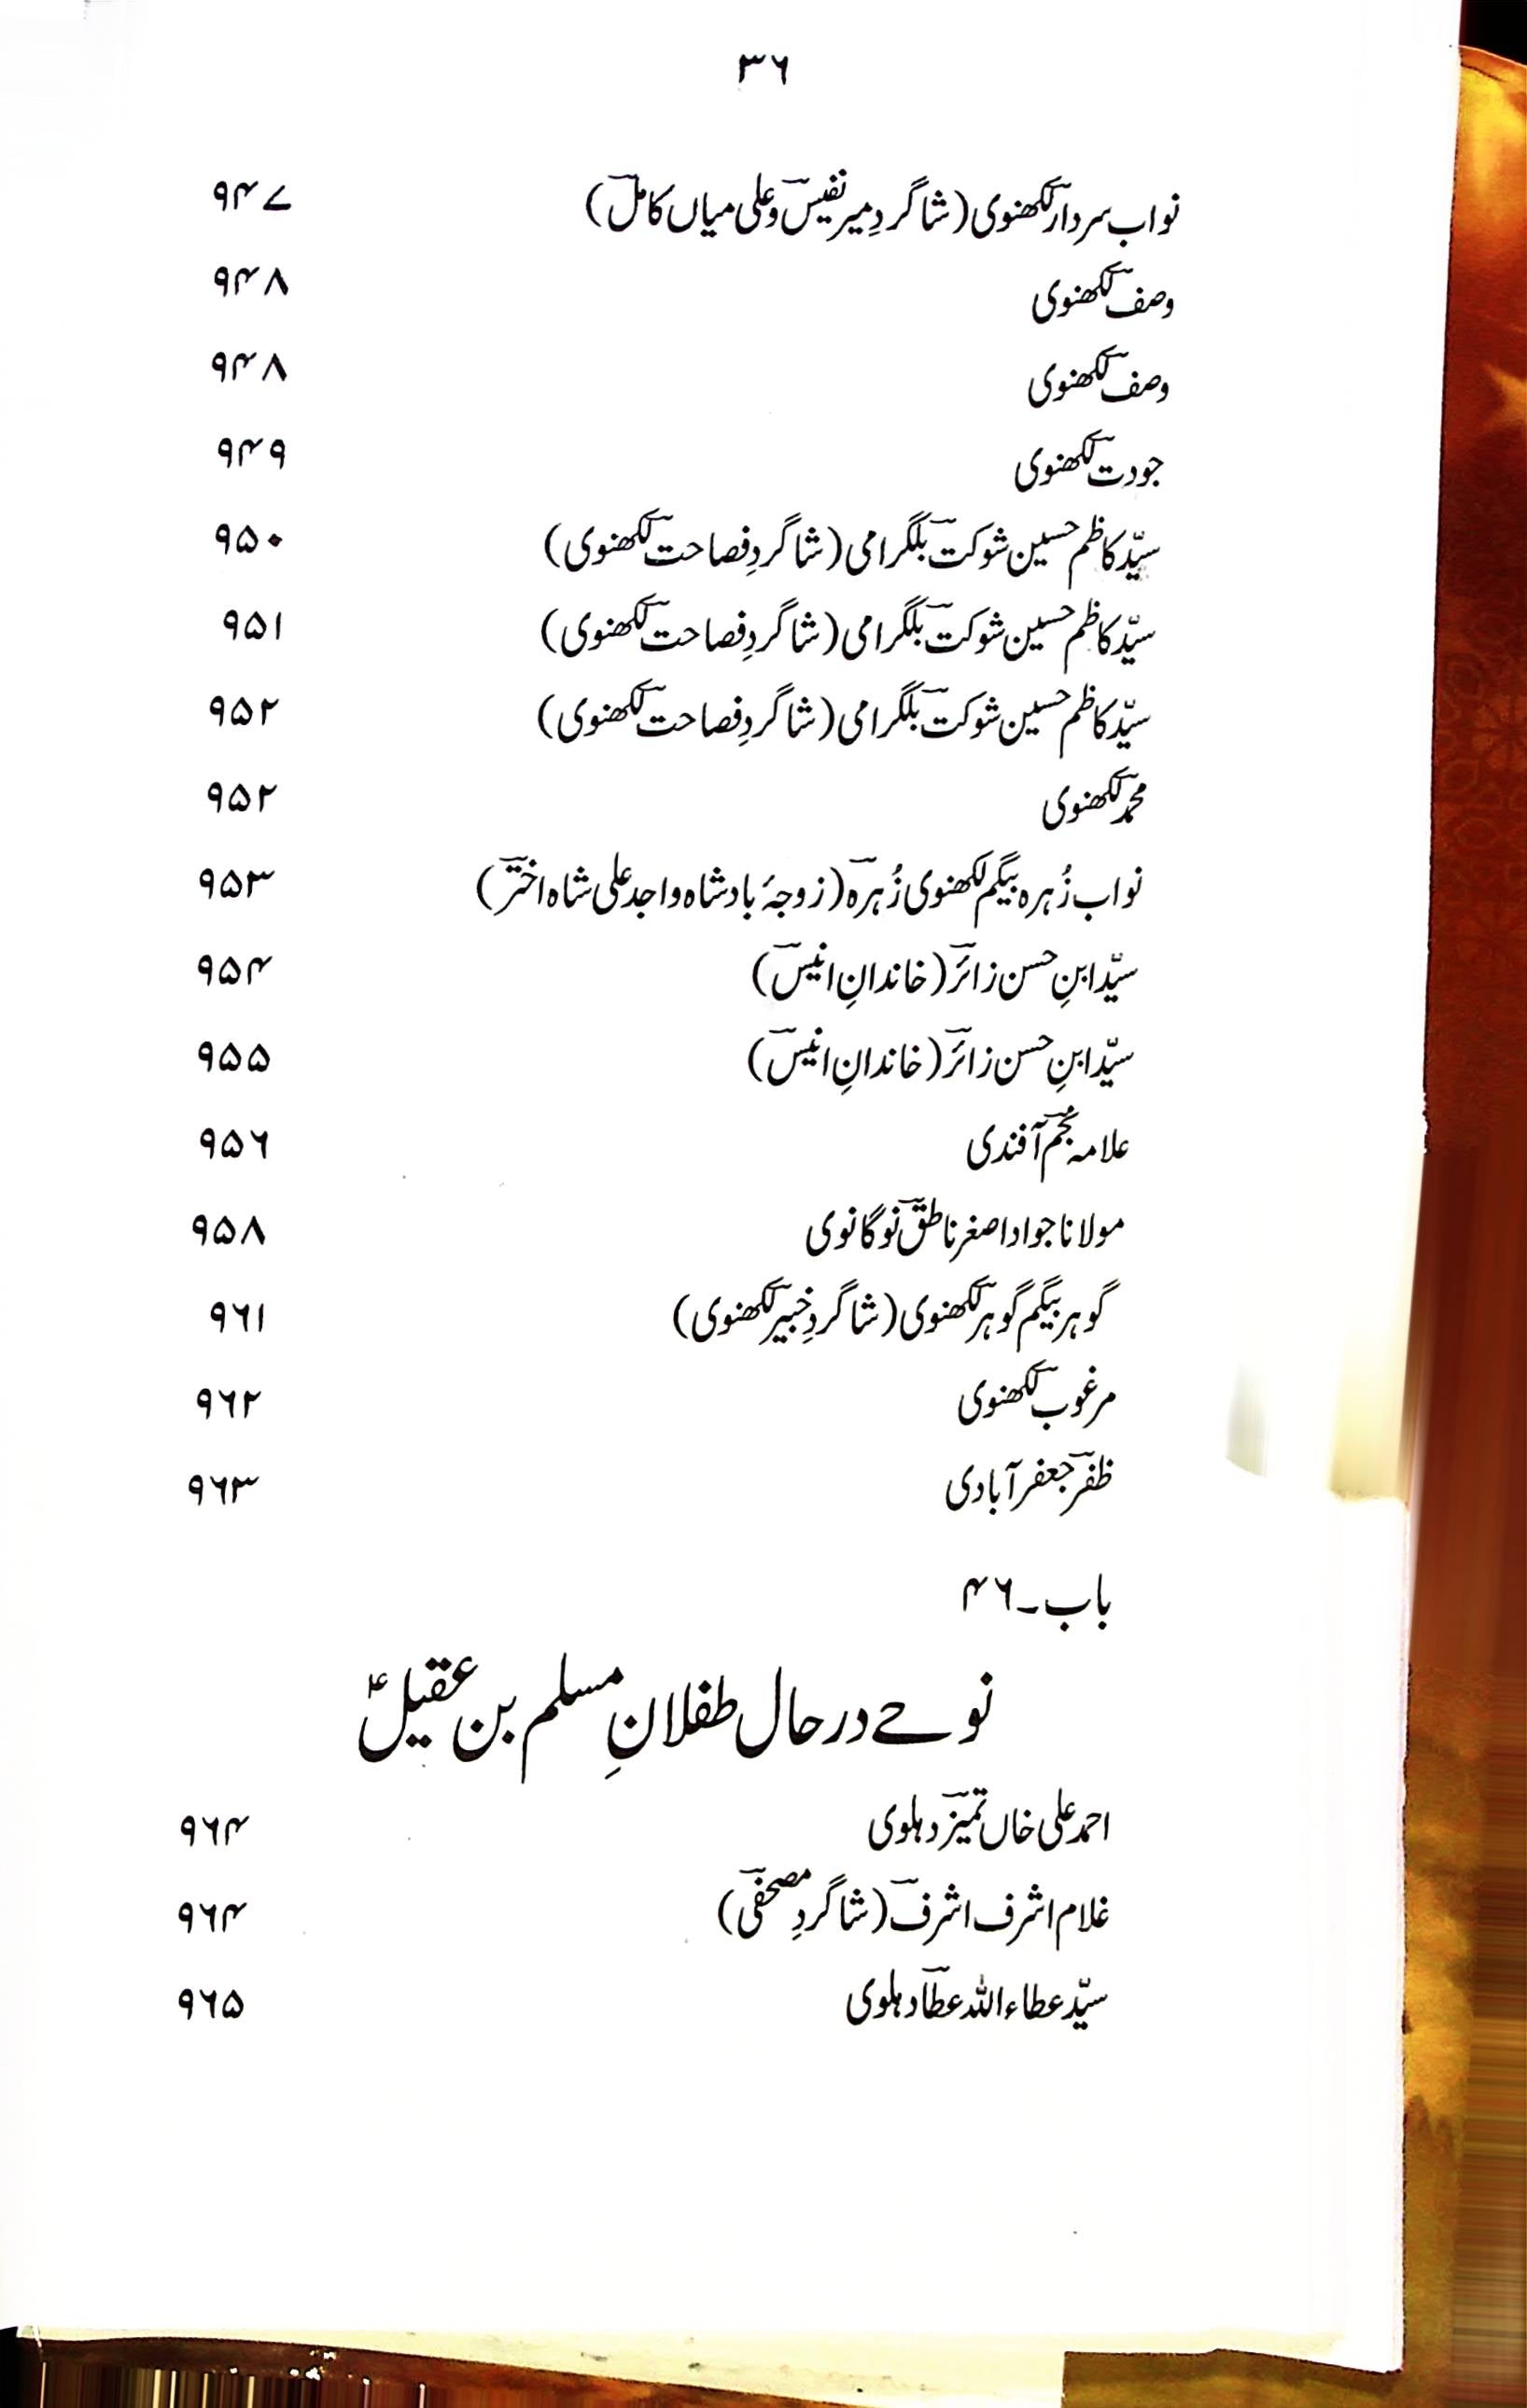 ۳۶
نواب سردارؔ لکھنوی (شاگردِ میر نفیسؔ و علی میاں کاملؔ) ۹۴۷
وصفؔ لکھنوی ۹۴۸
وصفؔ لکھنوی ۹۴۸
جودتؔ لکھنوی ۹۴۹
سیّد کاظم حسین شوکتؔ بلگرامی (شاگردِ فصاحتؔ لکھنوی) ۹۵۰
سیّد کاظم حسین شوکتؔ بلگرامی (شاگردِ فصاحتؔ لکھنوی) ۹۵۱
سیّد کاظم حسین شوکتؔ بلگرامی (شاگردِ فصاحتؔ لکھنوی) ۹۵۲
محمدؔ لکھنوی ۹۵۲
نواب زُہرہ بیگم لکھنوی زُہرہؔ (زوجۂ بادشاہ واجد علی شاہ اخترؔ) ۹۵۳
سیّد ابنِ حسن زائرؔ (خاندانِ انیسؔ) ۹۵۴
سیّد ابنِ حسن زائرؔ (خاندانِ انیسؔ) ۹۵۵
علامہ نجمؔ آفندی ۹۵۶
مولانا جواد اصغر ناطقؔ نوگانوی ۹۵۸
گوہر بیگم گوہرؔ لکھنوی (شاگردِ خبیرؔ لکھنوی) ۹۶۱
مرغوبؔ لکھنوی ۹۶۲
ظفرؔ جعفر آبادی ۹۶۳
باب۔۴۶
نوحے در حال طفلانِ مسلم بن عقیلؑ
احمد علی خاں تمیزؔ دہلوی ۹۶۴
غلام اشرف اشرفؔ (شاگردِ مصحفیؔ) ۹۶۴
سیّد عطاء اللہ عطاؔ دہلوی ۹۶۵